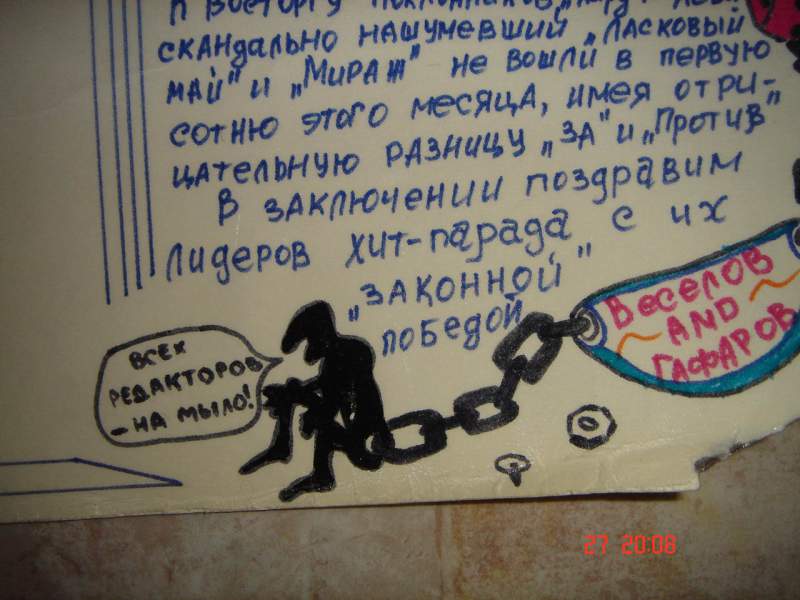 к восторгу поклонников
скандально нашумевший „Ласковый
май" и „Мираж" не вошли в первую
сотню этого месяца, имея отри-
цательную разницу „за" и „Против"
В заключении поздравим
лидеров хит-парада с их
„законной"
победой
Веселов
AND
Гафаров
Всех
редакторов
– на мыло!
27 20:08